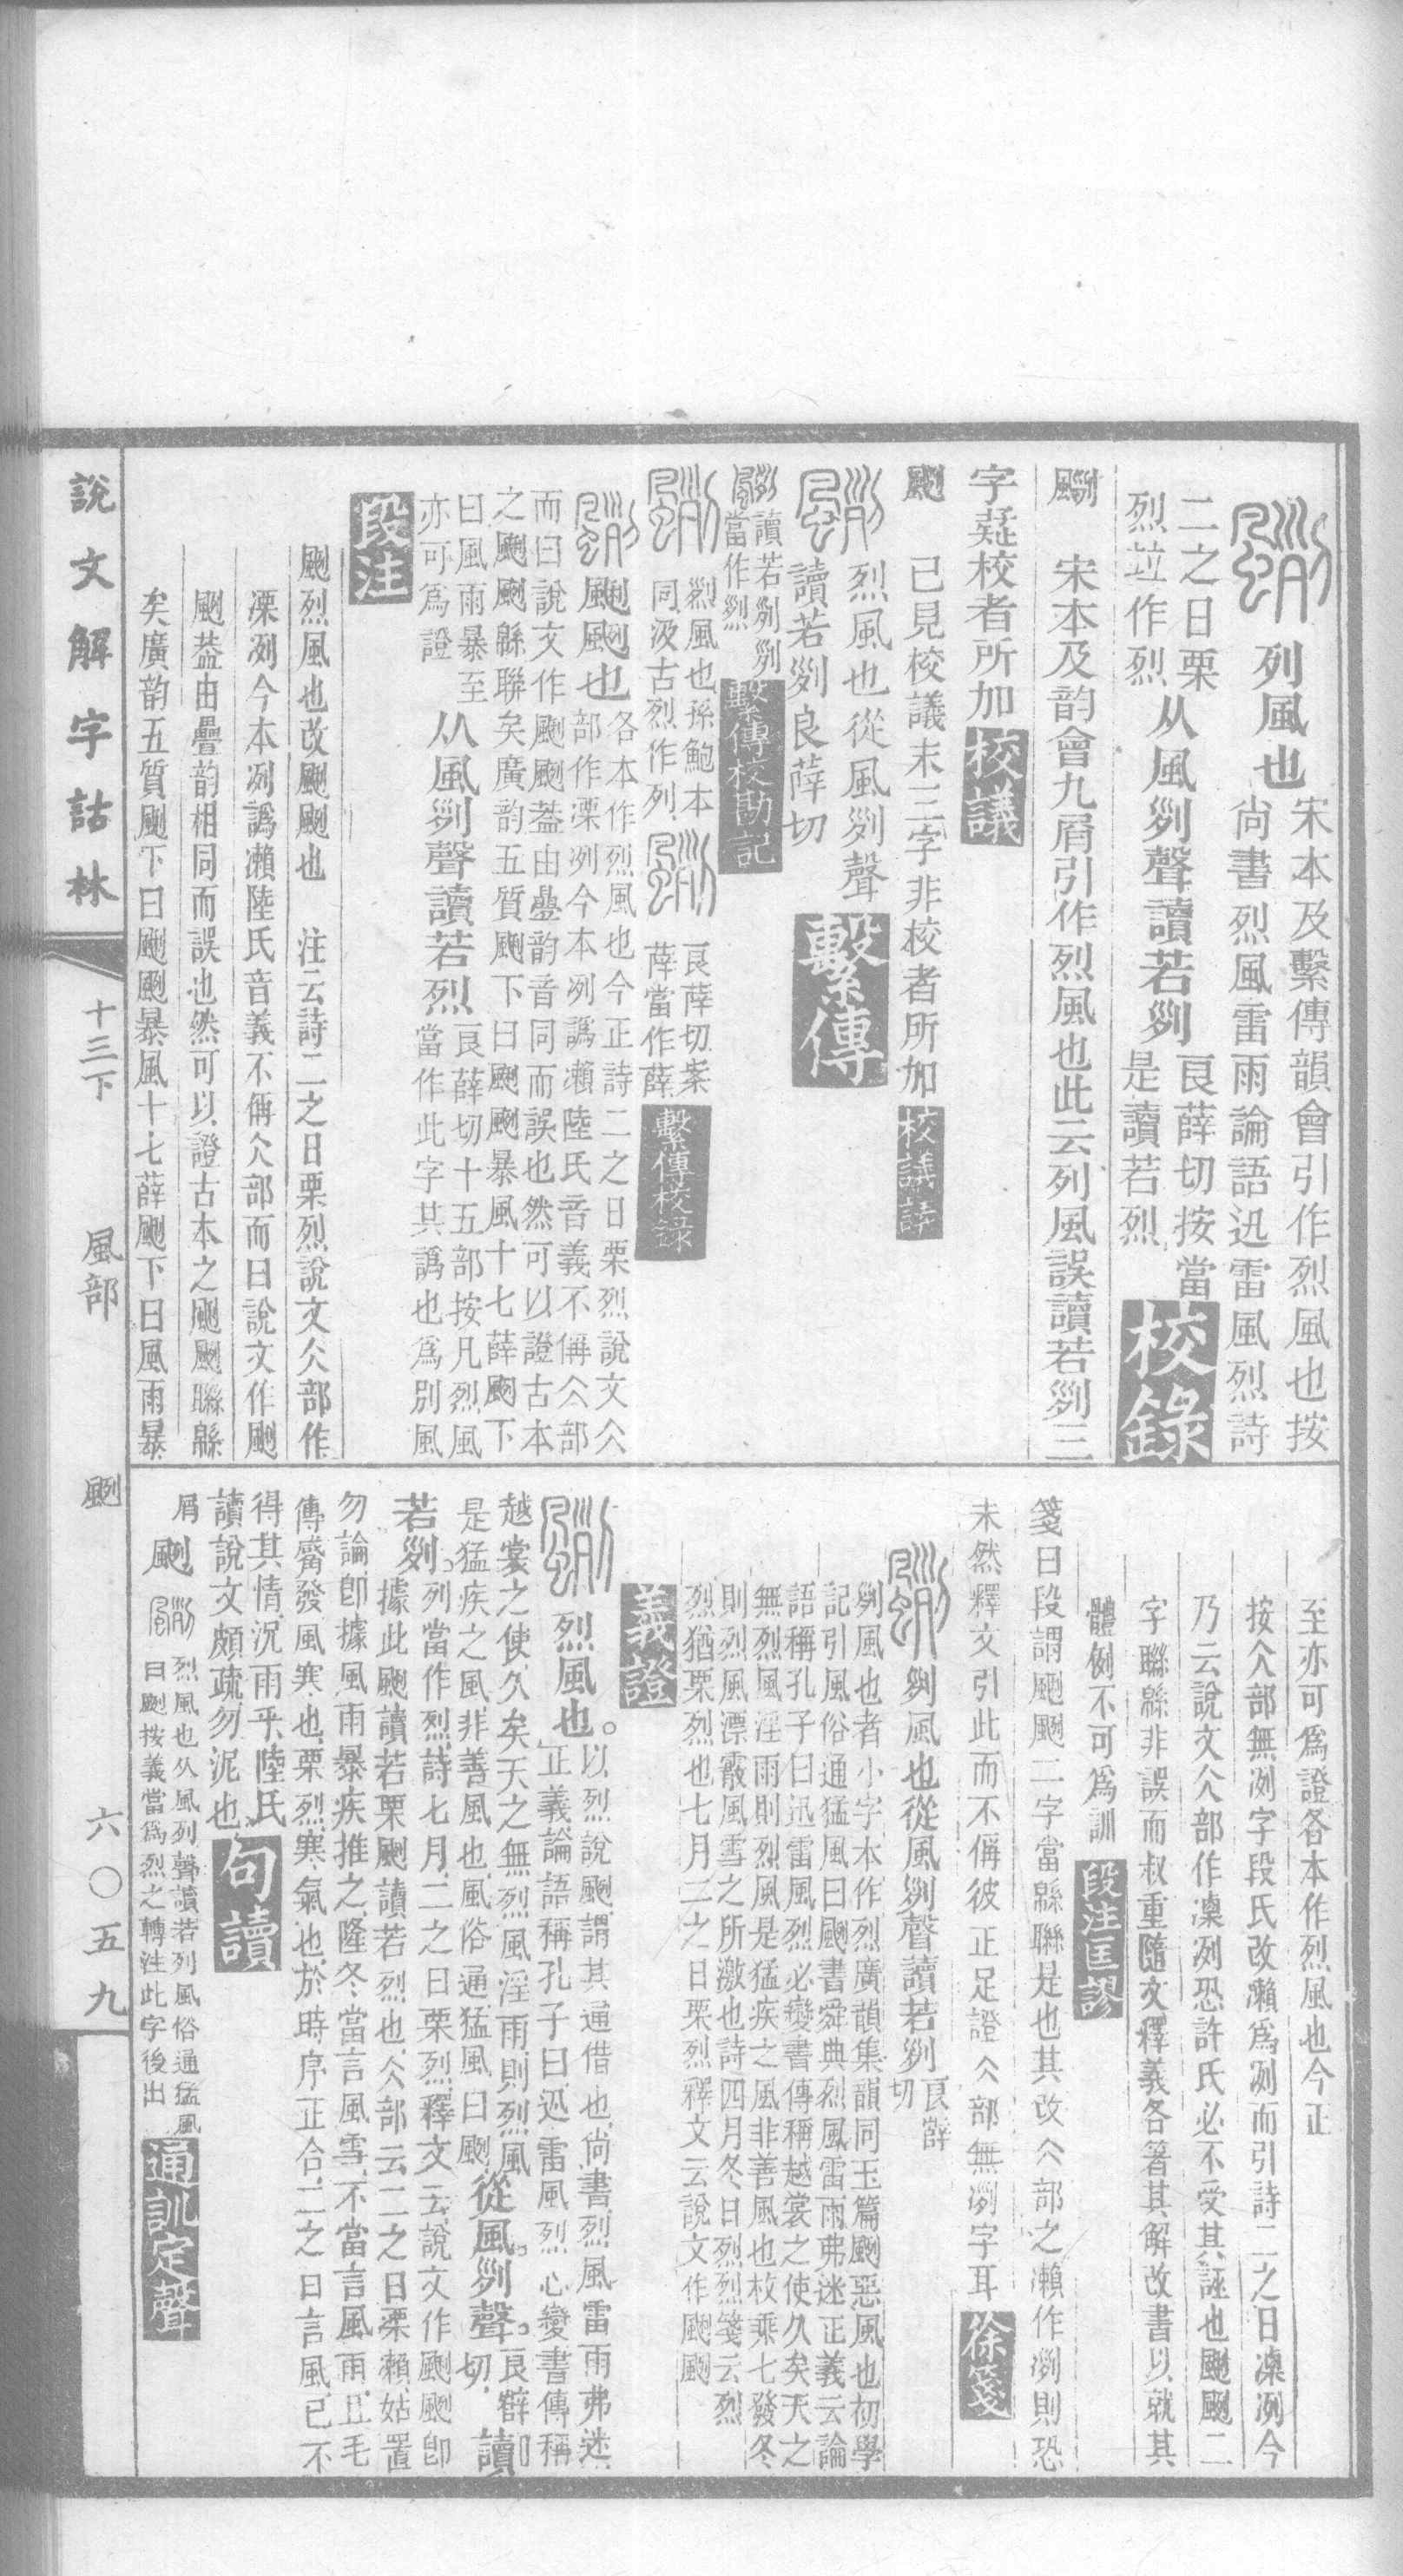 列風也宋本及繫傳韻會引作烈風也按
尚書烈風雷雨論語迅雷風烈詩
二之日栗从風𠛱聲讀若𠛱良薛切按當
烈竝作烈是讀若烈校錄
颲宋本及韵會九屑引作烈風也此云列風誤讀若𠛱三
字疑校者所加校議
颲已見校議末三字非校者所加校議議
烈風也從風𠛱聲
讀若𠛱良薛切繫傳
颲讀若𠛱𠛱
當作烈繫傳校勘記
烈風也孫鮑本
同汲古烈作列
良薛切案
薛當作薛繫傳校錄
颲颲風也各本作烈風也今正詩二之日栗烈說文仌
部作溧冽今本冽譌瀨陸氏音義不偁仌部
而曰說文作颲颲葢由疊韵音同而誤也然可以證古本
之颲颲緜聯矣廣韵五質颲下曰颲颲暴風十七薛颲下
曰風雨暴至从風𠛱聲讀若烈良薛切十五部按凡烈風
亦可爲證當作此字其譌也爲別風
段注
颲烈風也改颲颲也注云詩二之日栗烈說文仌部作
凓冽今本冽譌瀨陸氏音義不偁仌部而曰說文作颲
颲葢由疊韵相同而誤也然可以證古本之颲颲聯緜
矣廣韵五質颲下曰颲颲暴風十七薛颲下曰風雨暴
至亦可爲證各本作烈風也今正
按仌部無冽字段氏改瀨爲冽而引詩二之日凓冽今
乃云說文仌部作凓冽恐許氏必不受其誣也颲颲二
字聯緜非誤而叔重隨文釋義各箸其解改書以就其
體例不可爲訓段注匡謬
箋曰段謂颲颲二字當緜聯是也其改仌部之瀨作冽則恐
未然釋文引此而不偁彼正足證仌部無冽字耳徐箋
𠛱風也從風𠛱聲讀若𠛱良薛切
𠛱風也者小字本作烈廣韻集韻同玉篇颲惡風也初學
記引風俗通猛風曰颲書舜典烈風雷雨弗迷正義云論
語稱孔子曰迅雷風烈必變書傳稱越裳之使久矣天之
無烈風淫雨則烈風是猛疾之風非善風也枚乘七發冬
則烈風漂霰風雪之所激也詩四月冬日烈烈箋云烈
烈猶栗烈也七月二之日栗烈釋文云說文作颲颲
義證
烈風也。以烈說颲謂其通借也尚書烈風雷雨弗迷
正義論語稱孔子曰迅雷風烈必變書傳稱
越裳之使久矣天之無烈風淫雨則烈風
是猛疾之風非善風也風俗通猛風曰颲從風。𠛱聲。良薛切讀
若𠛱。列當作烈詩七月二之日栗烈釋文云說文作颲颲卽
據此颲讀若栗颲讀若烈也仌部云二之日溧瀨姑置
勿論卽據風雨暴疾推之隆冬當言風雪不當言風雨且毛
傳觱發風寒也栗烈寒氣也於時序正合二之日言風已不
得其情況雨乎陸氏
讀說文頗疏勿泥也句讀
屑颲烈風也从風列聲讀若列風俗通猛風
曰颲按義當爲烈之轉注此字後出通訓定聲
說文解字詁林 十三下 風部 颲 六〇五九